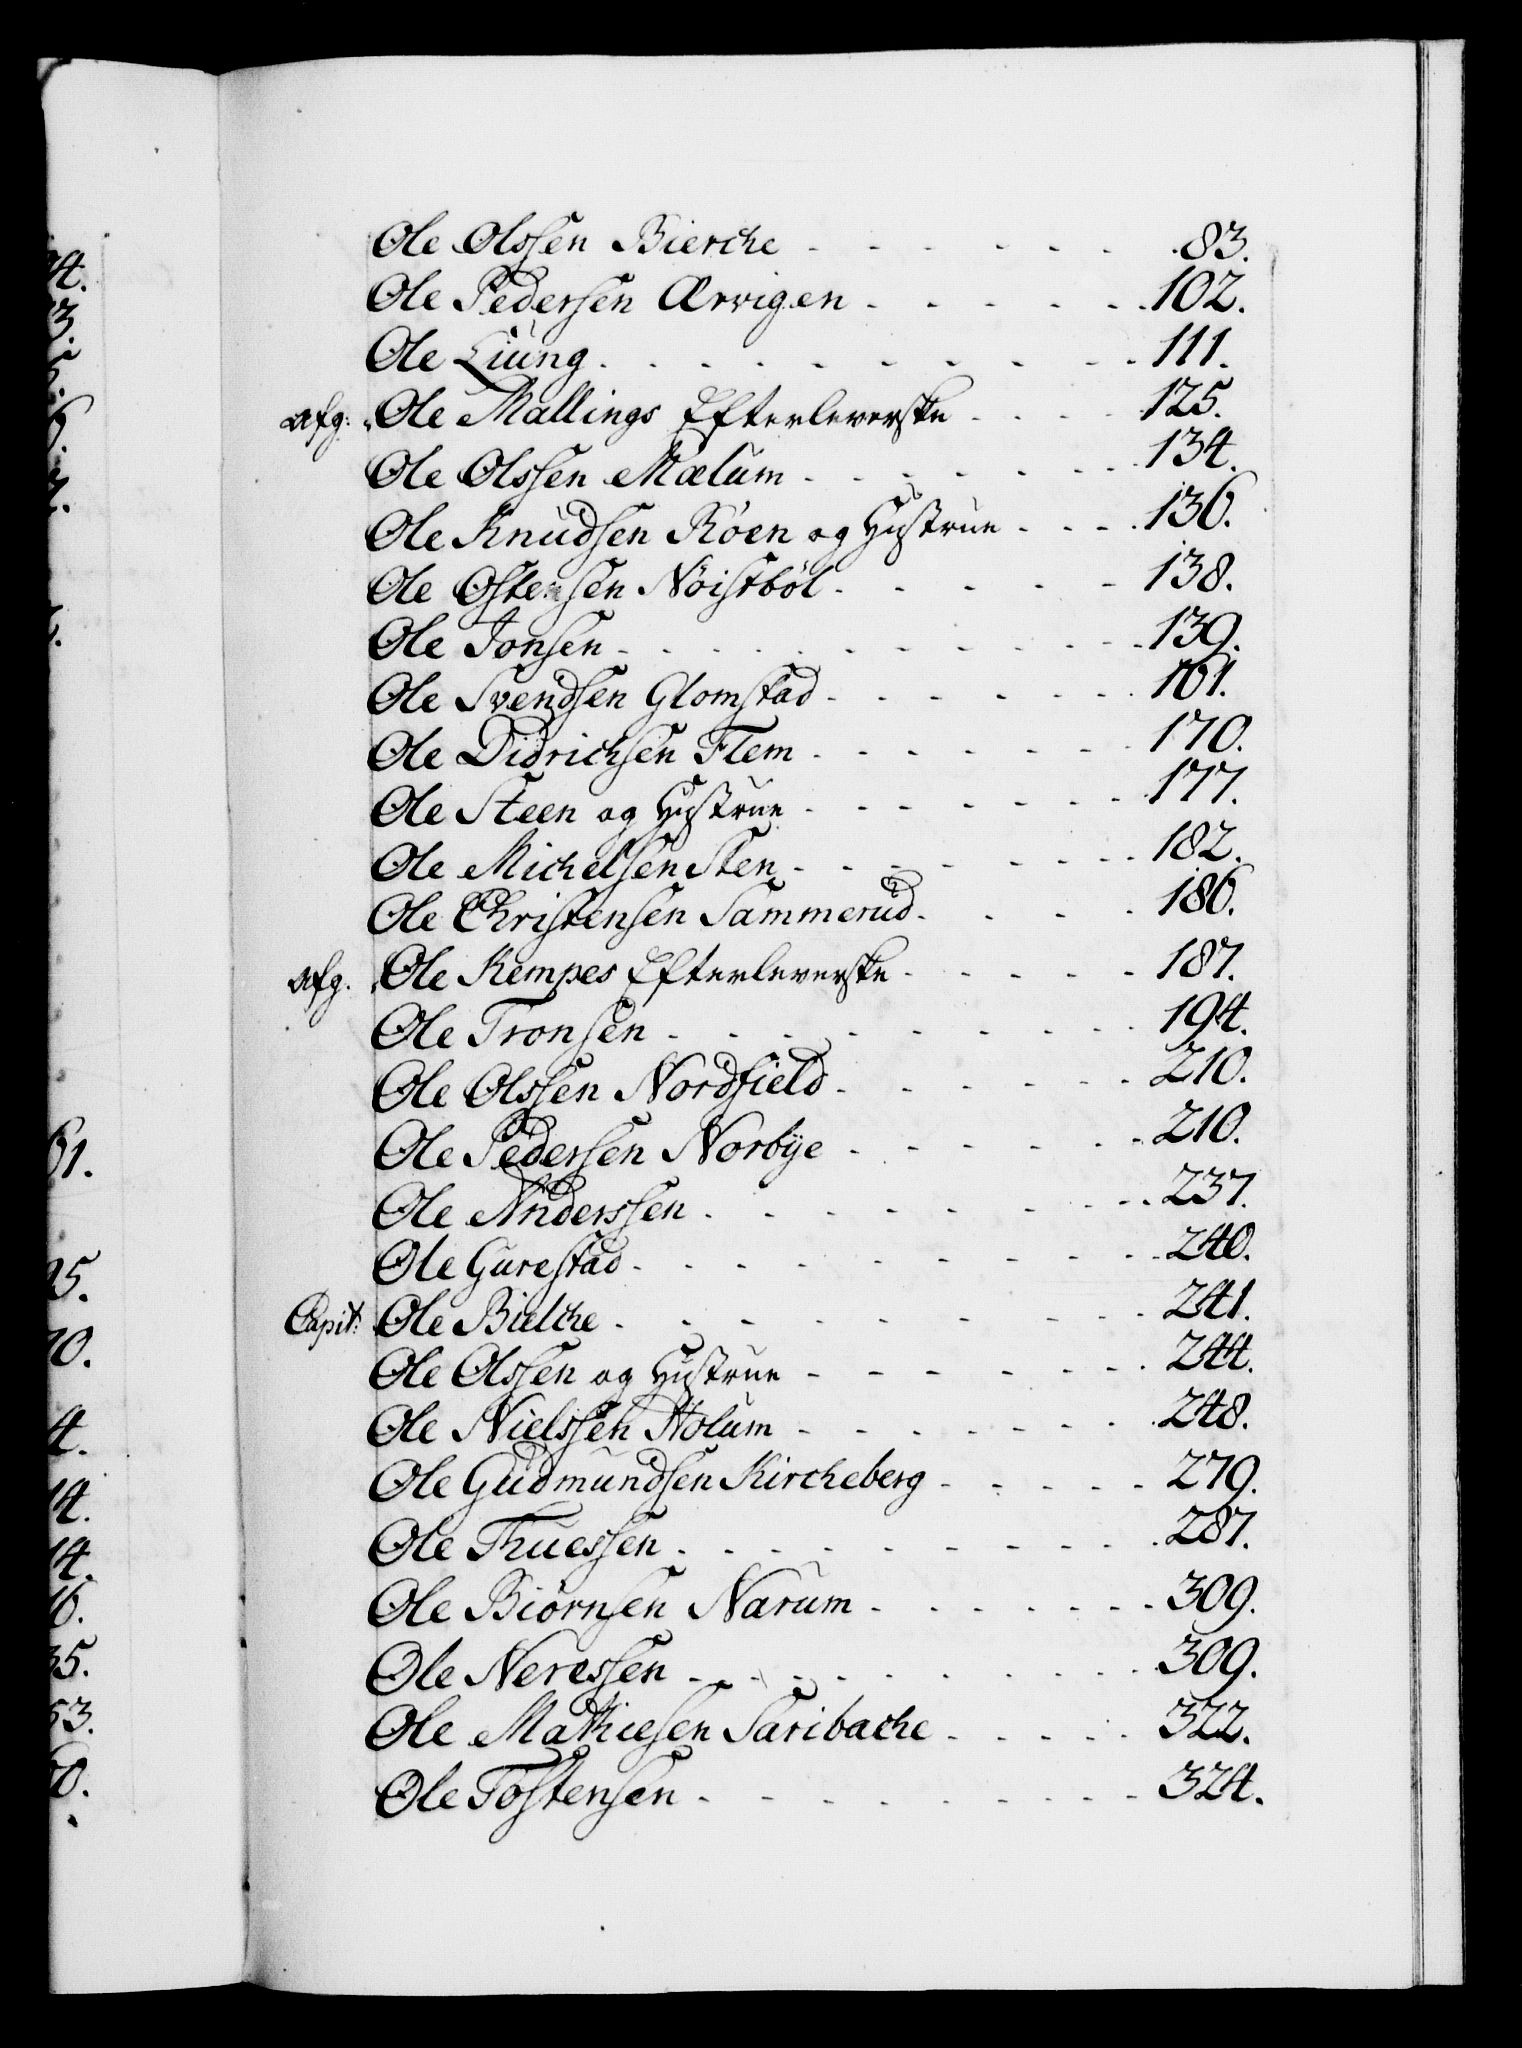 Ole Olssen Bierche - - - - - - 83.
Ole Pedersen Ærvigen - - - - - 102.
Ole Liung - - - - - - - - - 111.
afg: Ole Mallings Efterleverske - - - 125.
Ole Olssen Mælum - - - - - - 134.
Ole Knudsen Röen og Hustrue - - - 136.
Ole Ostensen Nöistböl - - - - - 138.
Ole Jonsen - - - - - - - - - 139.
Ole Svendsen Glomstad - - - - - - 161.
Ole Didrichsen Flem - - - - - - 170.
Ole Steen og Hustrue - - - - - - 177.
Ole Michelsen Sten - - - - - - - 182.
Ole Christensen Sammerud - - - - 186.
afg. Ole Kempes Efterleverske - - - - - 187.
Ole Tronsen - - - - - - - - - 194.
Ole Olssen Nordfield - - - - - - 210.
Ole Pedersen Norbÿe - - - - - - 210.
Ole Anderssen - - - - - - - - 237.
Ole Gurestad - - - - - - - - - 240.
Capit: Ole Bielche - - - - - - - - - 241.
Ole Olssen og Hustrue - - - - - - 244.
Ole Nielssen Holum - - - - - - - 248.
Ole Gudmundsen Kircheberg - - - - - 279.
Ole Thuessen - - - - - - - - - 287.
Ole Biörnsen Narum - - - - - - 309.
Ole Neressen - - - - - - - - - 309.
Ole Mathiesen Saribache - - - - - 322.
Ole Tostensen - - - - - - - - 324.